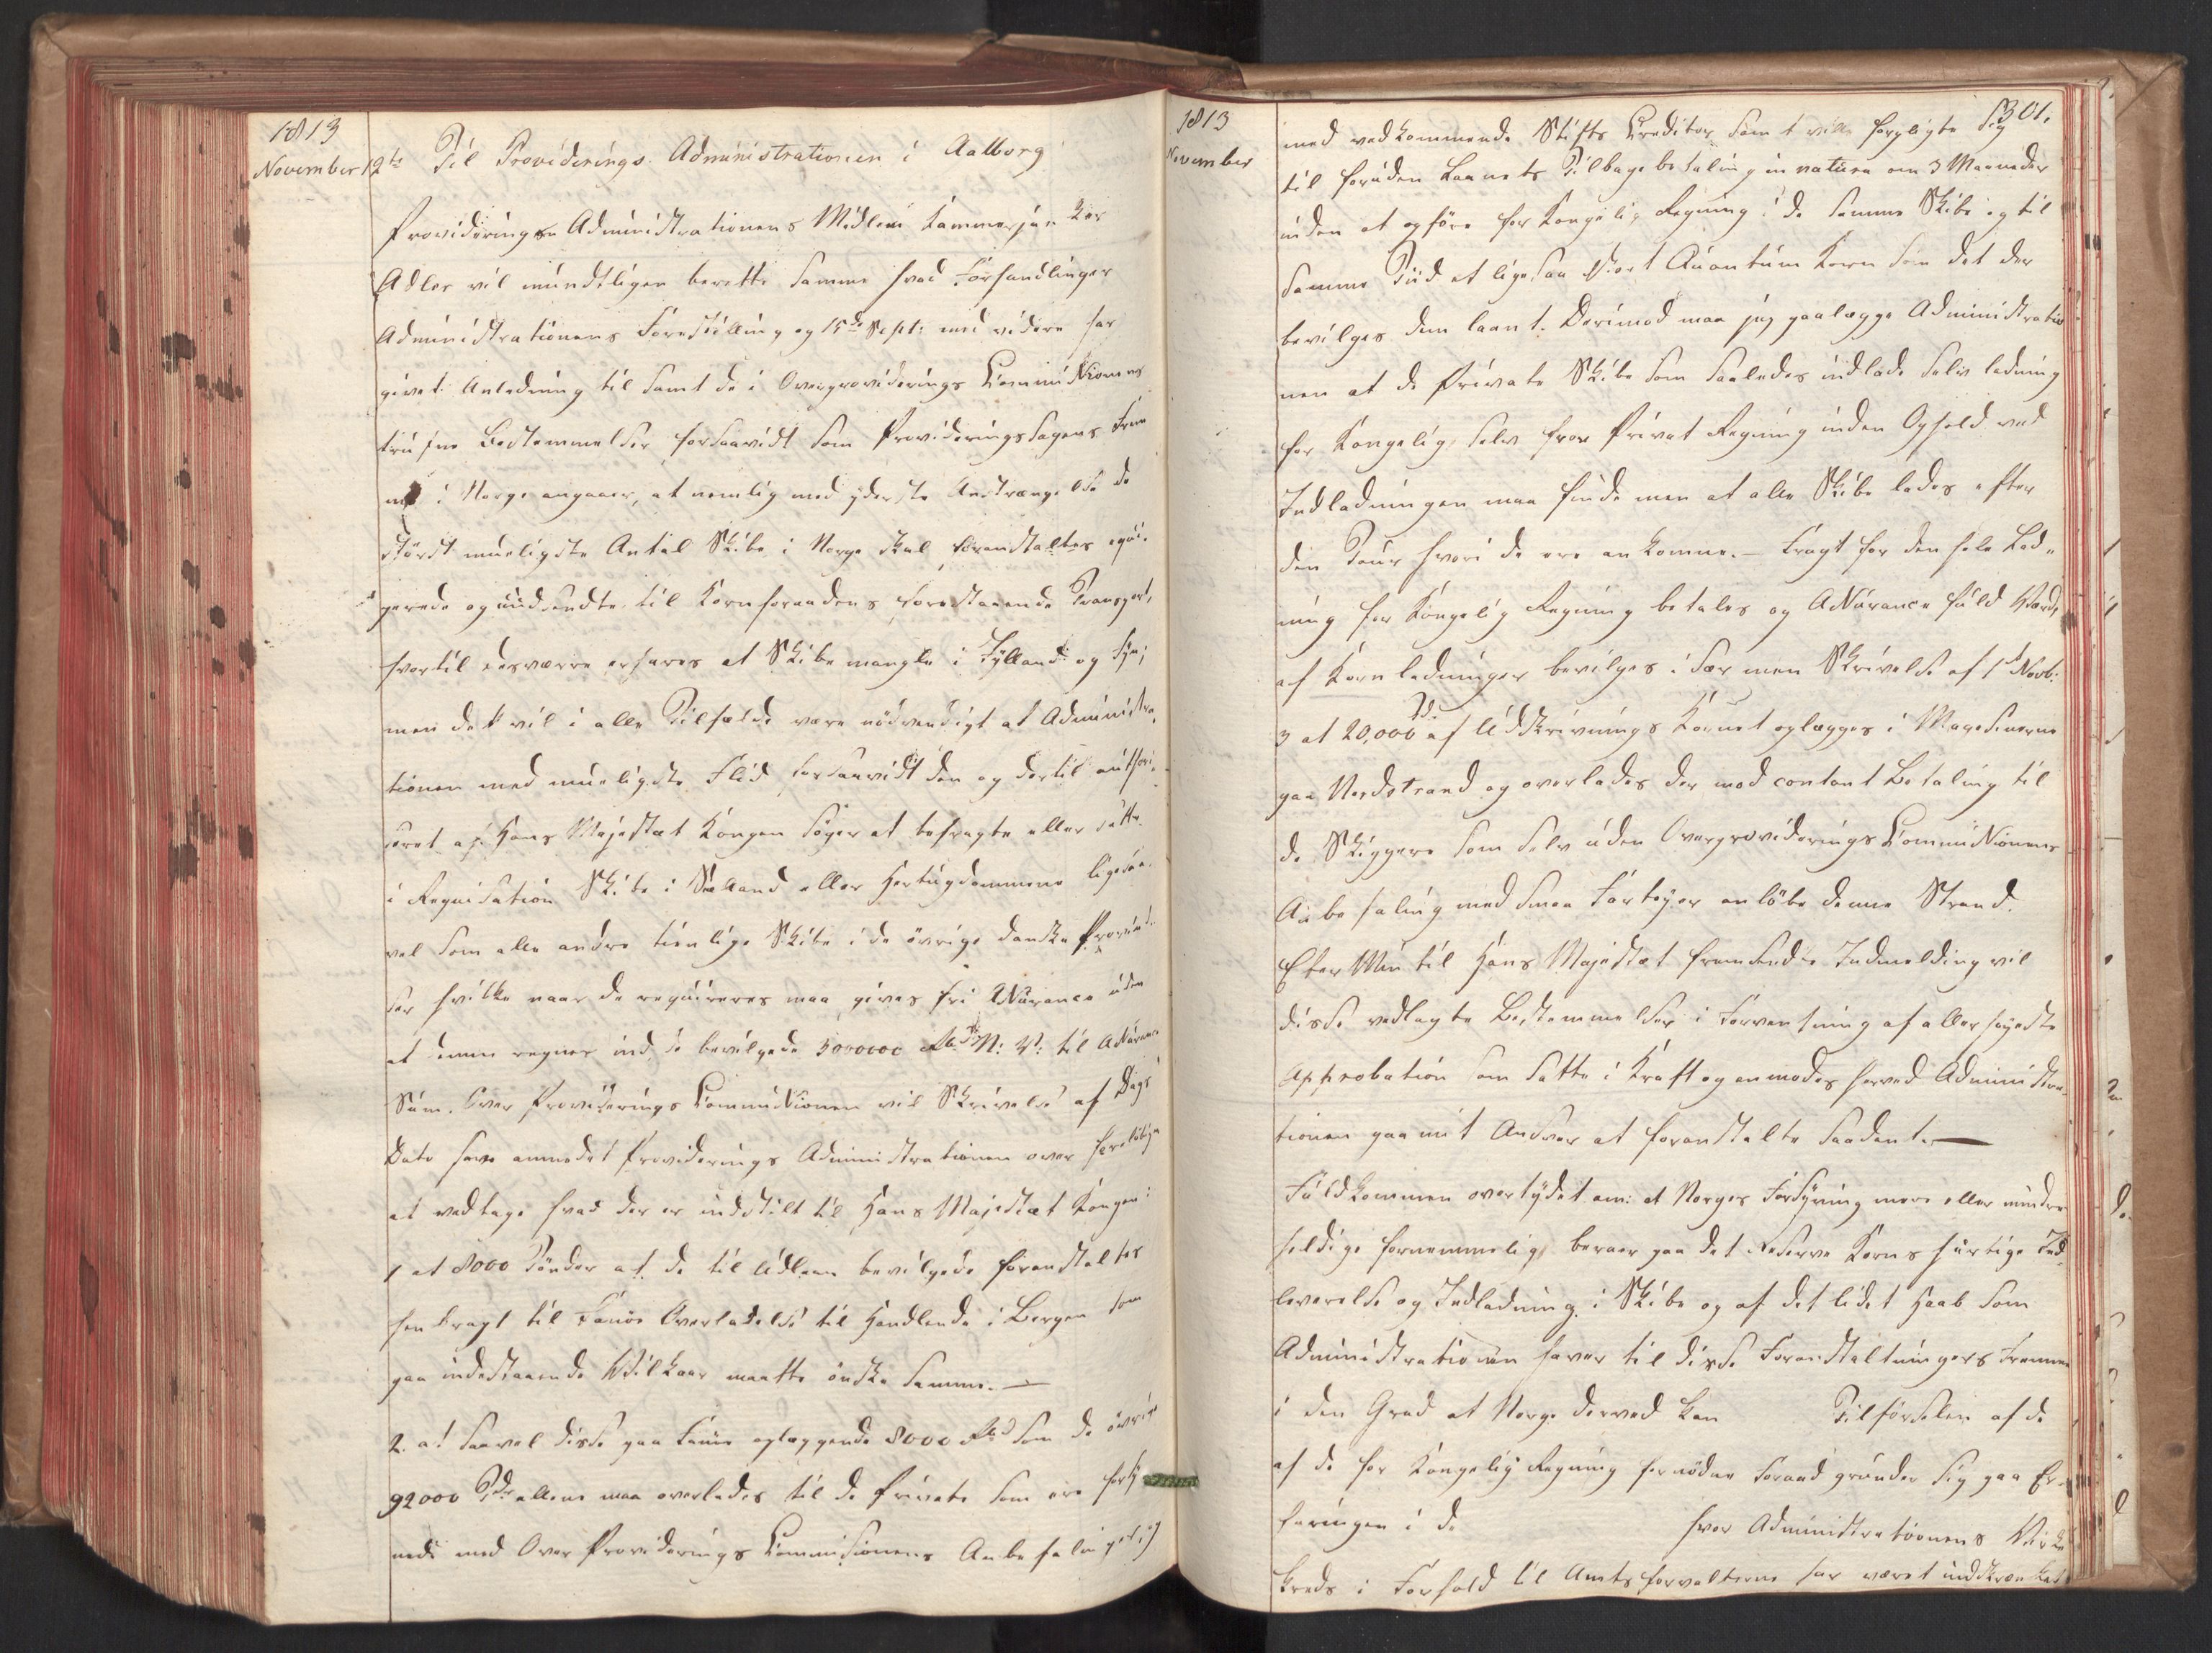 1813
November 12te Til Providerings Administrationen i Aalborg
Provideringen Administrationens Medlem Kammerjunker
Adler vil mundtligen berette samme hvad Forhandlinger
Administrationens Forestilling og 15de Sept: med videre har
givet Anledning til samt de i Overproviderings Commissionens
trufne Bestemmelser forsaavidt som Provideringssagens Frem
i Norge angaaer, at nemlig med yderste Anstrængelse de
störst mueligste Antal Skibe i Norge skal foranstaltes eqvi-
perede og udsendte til Kornforraadens forestaaende Transport,
hvortil desværre erfares at Skibe mangle i Jylland og Fyn;
men det vil i alle Tilfælde være nödvendigt at Administra-
tionen med mueligste Flid forsaavidt den og dertil authori-
seret af Hans Majestæt Kongen söger at befragte eller sætte
i Reqvisation Skibe i Siælland eller Hertugdommene ligesaa-
vel som alle andre tienlige Skibe i de övrige danske Provind-
ser hvilke naar de reqvireres maa gives fri Assurance uden
at denne regnes ind i de bevilgede 5000000 Rbd N: V: til Assurance
Sum. Over Providerings Commissionen vil Skrivelse af Dags
Dato have anmodet Providerings Administrationen over forelöbigen
at vedtage hvad der er indstilt til Hans Majestæt Kongen:
1 at 8000 Tönder af de til Udlaan bevilgede foranstaltes
henbragt til Fanöe Overladelse til Handlende i Bergen som
paa indestaaende Vilkaar maatte önske samme. —
2. at saavel disse paa Fanöe oplæggende 8000 Tdr som de övrige
92000 Tdr allene maa overlades til de Private som ere forsy-
nede med Over Providerings Commissionens Anbefaling
1813
November
301.
med vedkommende Stifts Creditor samt ville forpligte sig
til foruden Laanets Tilbagebetaling in natura om 3 Maaneder
uden at opföre for Kongelig Regning i de samme Skibe og til
samme Tiid et ligesaa stort Qvantum Korn som det der
bevilges dem laant. Derimod maa jeg paalægge Administratio
nen at de Private Skibe som saaledes indlade halv ladning
for Kongelig, halv for Privat Regning uden Ophold ved
Indladningen maa finde men at alle Skibe lades efter
den Tour hvori de ere ankomne. — Fragt for den hele Lad-
ning for Kongelig Regning betales og Assurance fuld Værdi
af Kornladninger bevilges i Sær men Skrivelse af 1d Novb:
3 at 20,000 Tdr af Udskrivnings Kornet oplægges i Magasinerne
paa Nordstrand og overlades der mod contant Betaling til
de Skippere som selv uden Overproviderings Commissionens
Anbefaling med smaa Fartöyer anlöbe denne Strand.
Efter Min til Hans Majestæt fremsendte Indmelding vil
disse vedlagte Bestemmelser i Forventning af allerhöyeste
Approbation som satte i Kraft og anmodes herved Administra-
tionen paa mit Ansvar at foranstalte saadant. —
Fuldkommen overtydet om: at Norges Forsyning mere eller mindre
heldige fornemmelig beroer paa det Reserve Korns hurtige Ind-
leverelse og Indladning i Skibe og af det lidet Haab som
Administrationen haver til disse Foranstaltningers Fremme
i den Grad at Norge derved kan Tilförselen af de
af de for Kongelig Regning fornödne Foraad grunder sig paa Er-
faringen i de hvor Administrationens Virke
kreds i Forhold til Amtsforvalterne har været indskrænket